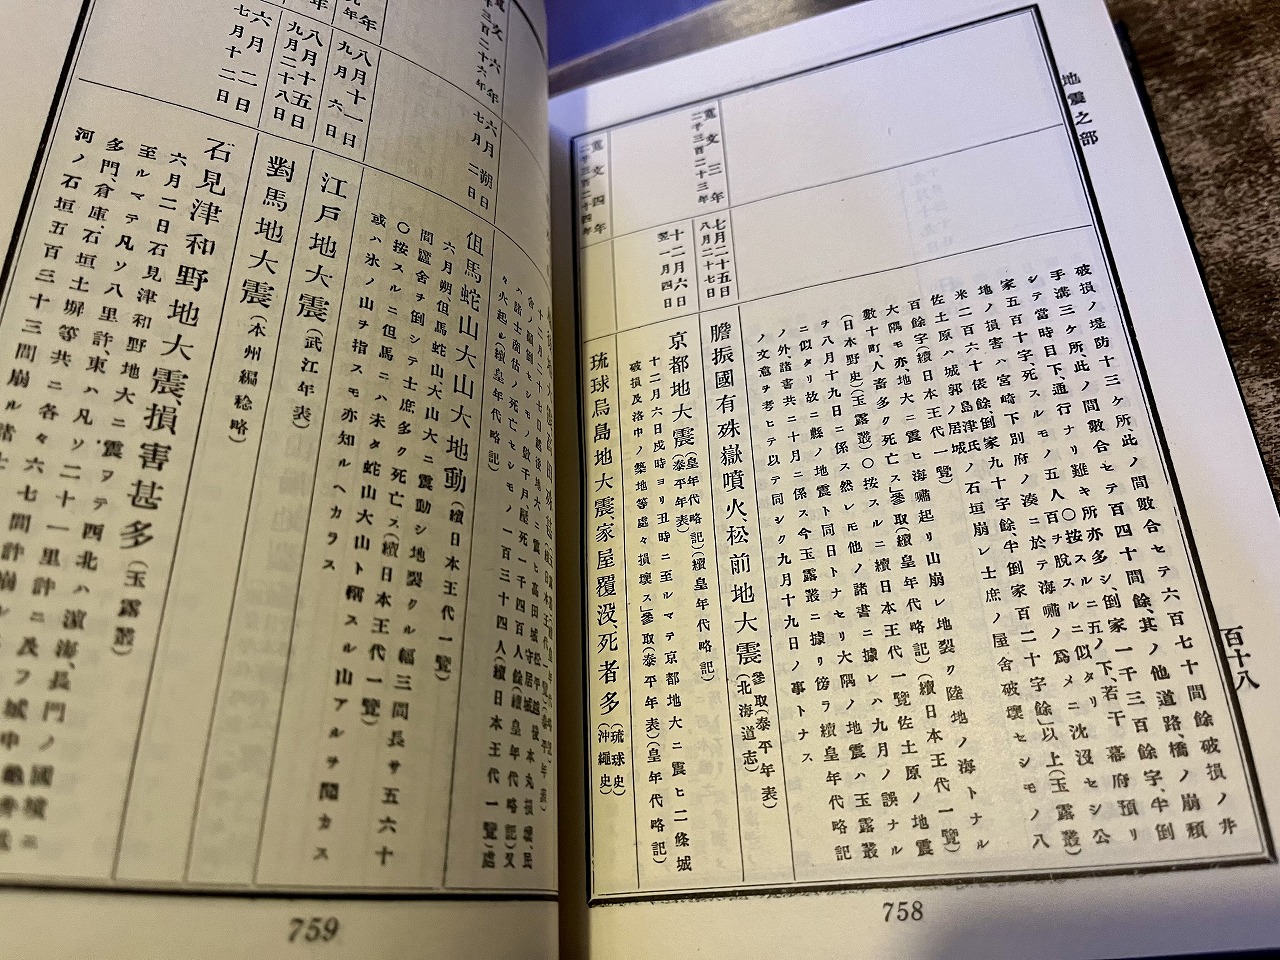 地震之部
百十八
破損ノ堤防十三ケ所、此ノ間數合セテ六百七十間餘破損ノ井
手溝三ケ所、此ノ間數合セテ百四十間餘、其ノ他道路、橋ノ崩頽
シテ當時目下通行ナリ難キ所亦多シ、倒家一千三百餘宇、半倒
家五百十宇、死スルモノ五人〇按スルニ似タリ五ノ下、若干幕府預リ
地ノ損害ハ宮崎下別府ノ湊ニ於テ海嘯ノ爲メニ沈沒セシ公
米二百六十俵餘、倒家九十宇餘、半倒家百二十宇餘」以上(玉露叢)
佐土原ハ城郭ノ居城島津氏ノ石垣崩レ士庶ノ屋舍破壞セシモノ八
百餘宇(續日本王代一覽)
大隅モ亦地大ニ震ヒ海嘯起リ山崩レ地裂ク陸地ノ海トナル
數十町、人畜多ク死亡ス」參取(續皇年代略記)(續日本王代一覽)
(日本野史)(玉露叢)〇按スルニ續日本王代一覽佐土原ノ地震
ヲ八月十九日ニ係ス然レモ他ノ諸書ニ據レハ九月ノ誤ナル
ニ似タリ故ニ縣ノ地震ト同日トナセリ大隅ノ地震ハ玉露叢
ノ外、諸書共ニ十月ニ係ス今玉露叢ニ據リ傍ラ續皇年代略記
ノ文意ヲ考ヒテ以テ同シク九月十九日ノ事トナス
寛文三年
二千三百二十三年
七月二十五日
八月二十七日
膽振國有珠嶽噴火、松前地大震 參取(泰平年表)(北海道志)
十二月六日
翌一月四日
京都地大震 (皇年代略記)(續皇年代略記)(泰平年表)
十二月六日戌時ヨリ丑時ニ至ルマテ京都地大ニ震ヒ二條城
破損及洛中ノ築地等處々損壞ス」參取(泰平年表)(皇年代略記)
寛文四年
二千三百二十四年
琉球鳥島地大震家屋覆沒、死者多 (琉球史)(沖繩史)
758
十二月二十七日越後地大ニ震ヒ高田城
舍ノ傾倒セシモノ數千戸屋死一千四百人餘(續皇年代略記)又
ハ諸士商估ノ死亡セシモノ一百三十四人(續日本王代一覽)處
々火起ル(續皇年代略記)
寛文六年
二千三百二十六年
六月朔日
七月二日
但馬蛇山大山大地動 (續日本王代一覽)
六月朔但馬蛇山大山大ニ震動シ地裂クル幅三間長サ五六十
間廬舍ヲ倒シテ士庶多ク死亡ス(續日本王代一覽)
〇按スルニ但馬ニハ未タ蛇山大山ト稱スル山アルヲ聞カス
或ハ氷ノ山ヲ指スモ亦知ルヘカラス
八月十一日
九月六日
江戸地大震 (武江年表)
八月十五日
九月二十八日
對馬地大震 (本州編稔略)
六月二日
七月十二日
石見津和野地大震、損害甚多 (玉露叢)
六月二日石見津和野地大ニ震ヲテ西北ハ濱海、長門ノ國境ニ
至ルマテ凡ソ八里許、東ハ凡ソ二十一里許ニ及フ城中
多門、倉庫、石垣土塀等共ニ各々六七間許崩ル
河ノ石垣五百三十三間崩ル
759